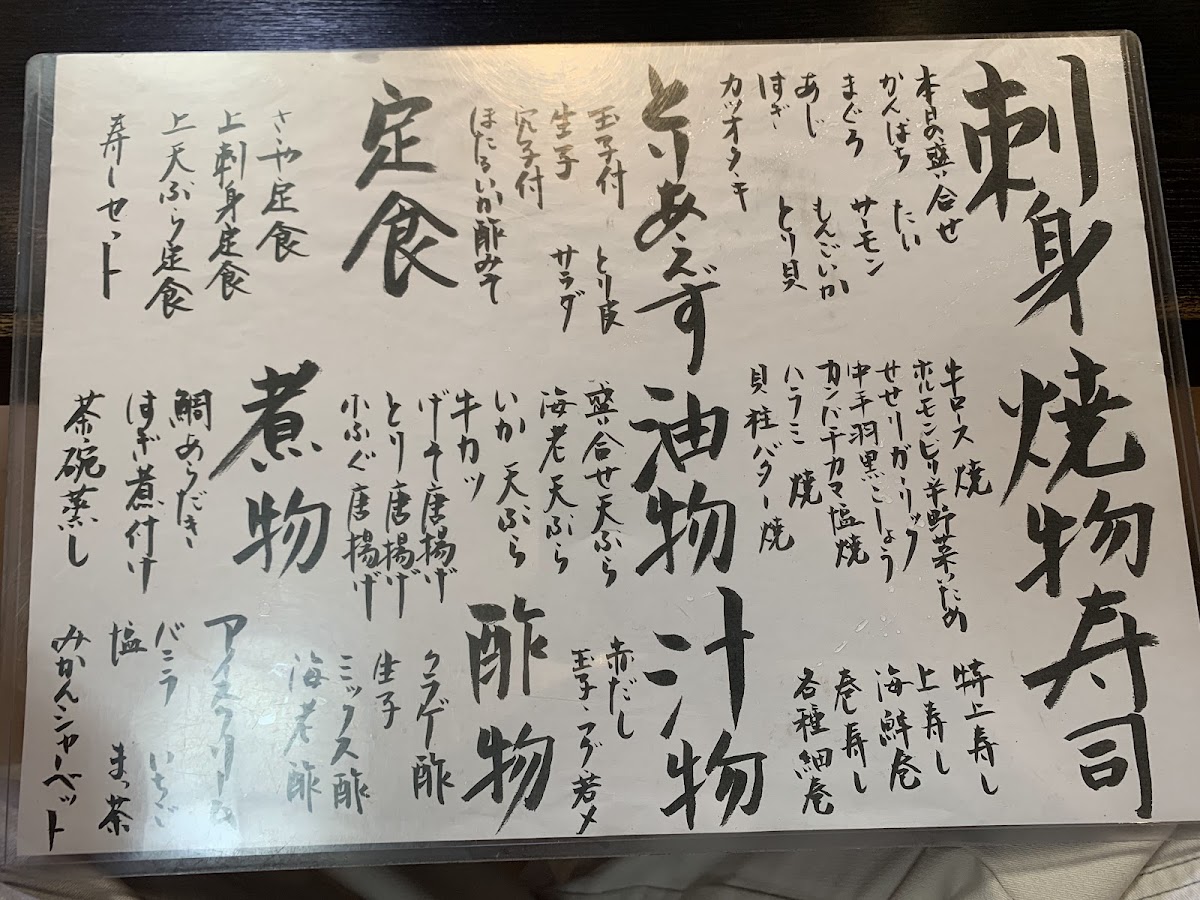 刺身
本日の盛い合せ
かんぱち
たい
まぐろ
サーモン
あじ
もんごいか
すぎ
とり貝
カツオタタキ
とりあえず
玉子付
とり皮
生子
サラダ
穴子付
ほたるいか酢みそ
定食
さゝや定食
上刺身定食
上天ぷら定食
寿しセット
焼物
牛ロース焼
ホルモンピリ辛野菜いため
せせりガーリック
中手羽黒こしょう
カンパチカマ塩焼
ハラミ焼
貝柱バター焼
油物
盛い合せ天ぷら
海老天ぷら
いか天ぷら
牛カツ
げそ唐揚げ
とり唐揚げ
小ふぐ唐揚げ
煮物
鯛あらだき
すぎ煮付け
茶碗蒸し
寿司
特上寿し
上寿し
海鮮巻
巻寿し
各種細巻
汁物
赤だし
玉子フグ若メ
酢物
クラゲ酢
生子
ミックス酢
海老酢
アイスクリーム
バニラ
いちご
塩
まっ茶
みかんシャーベット